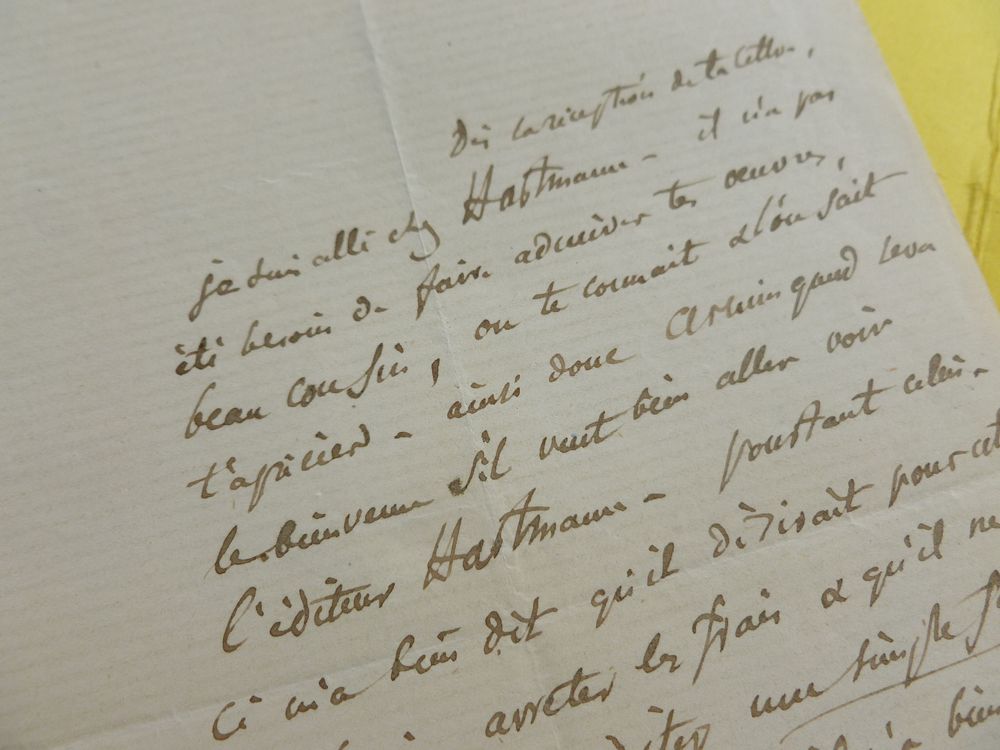 Dès la réception de ta lettre,
je suis allé chez Hartmann - il n'a pas
été besoin de faire admirer tes œuvres,
beau cousin, on te connait & l'on sait
t'apprécier - ainsi donc Armingaud sera
le bienvenu s'il veut bien aller voir
l'éditeur Hartmann - pourtant celui-
ci m'a bien dit qu'il désirait pour cet
arrêter les frais & qu'il ne
une simple
bien